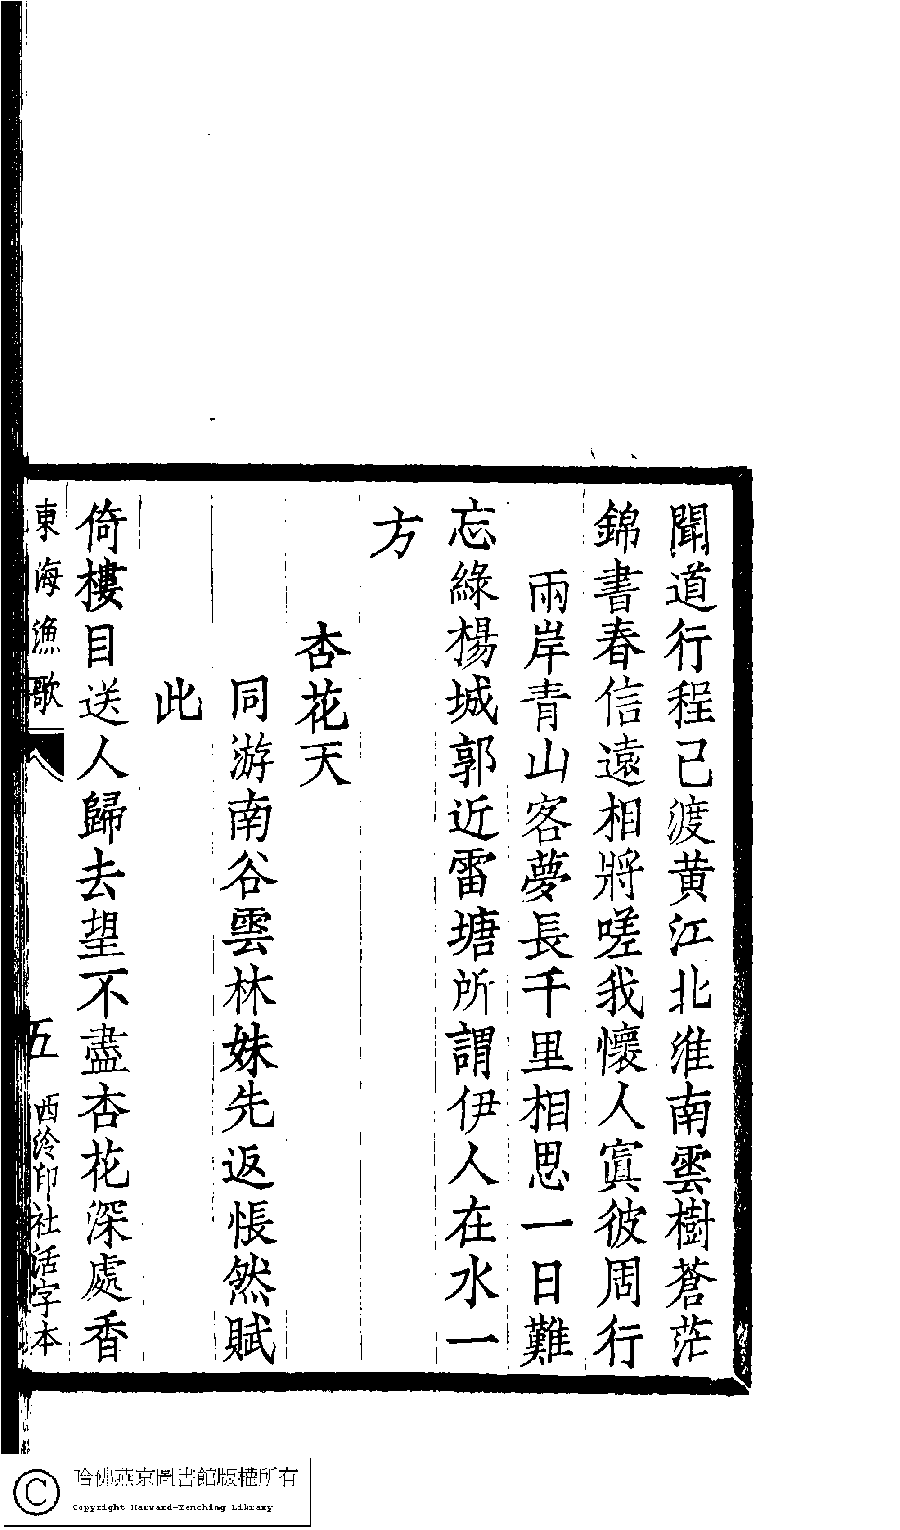 聞道行程已渡黄江北淮南雲樹蒼茫
錦書春信遠相將嗟我懷人寘彼周行
兩岸青山客夢長千里相思一日難
忘綠楊城郭近雷塘所謂伊人在水一
方
杏花天
同游南谷雲林妹先返悵然賦
此
倚樓目送人歸去望不盡杏花深處香
東海漁歌 五 西泠印社活字本
哈佛燕京圖書館版權所有
Copyright Harvard-Yenching Library